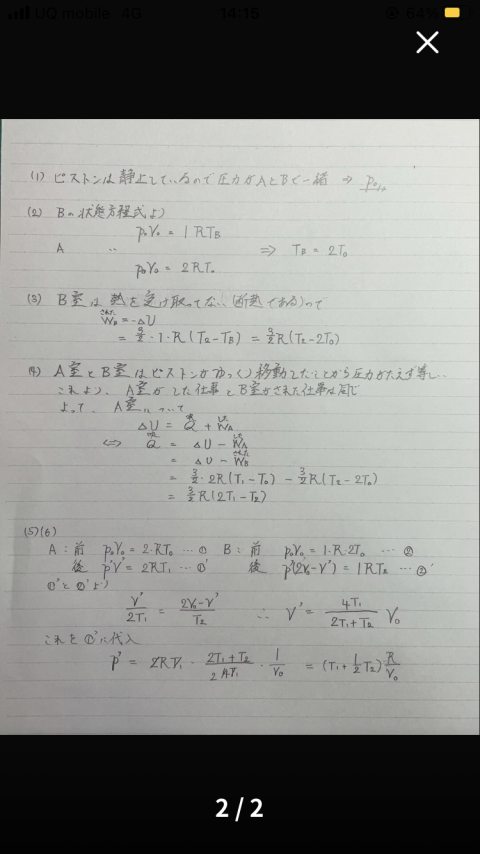 UQ mobile 4G 14:15 64%
(1) ピストンは静止しているので圧力がAとBで一緒 ⇒ p₀
(2) Bの状態方程式より
p₀V₀ = 1RT_B
A 〃 ⇒ T_B = 2T₀
p₀V₀ = 2RT₀
(3) B室は熱を受け取ってない(断熱である)って
された
W_B = -ΔU
= 3/2・1・R(T₂-T_B) = 3/2R(T₂-2T₀)
(4) A室とB室はピストンがゆっくり移動したことから圧力がたえず等しい。
これより、A室がした仕事とB室がされた仕事は同じ
よって、A室について
ΔU = Q + W_A
⇔ Q = ΔU - W_A
= ΔU - W_B
= 3/2・2R(T₁-T₀) - 3/2R(T₂-2T₀)
= 3/2R(2T₁-T₂)
(5)(6)
A:前 p₀V₀ = 2・RT₀ … ① B:前 p₀V₀ = 1・R・2T₀ … ②
後 p'V' = 2RT₁ … ①' 後 p'(2V₀-V') = 1RT₂ … ②'
①'と②'より
V'/2T₁ = 2V₀-V'/T₂ ∴ V' = 4T₁/2T₁+T₂ V₀
これを①'に代入
p' = 2RT₁・2T₁+T₂/2 4T₁・1/V₀ = (T₁+1/2T₂)R/V₀
2 / 2